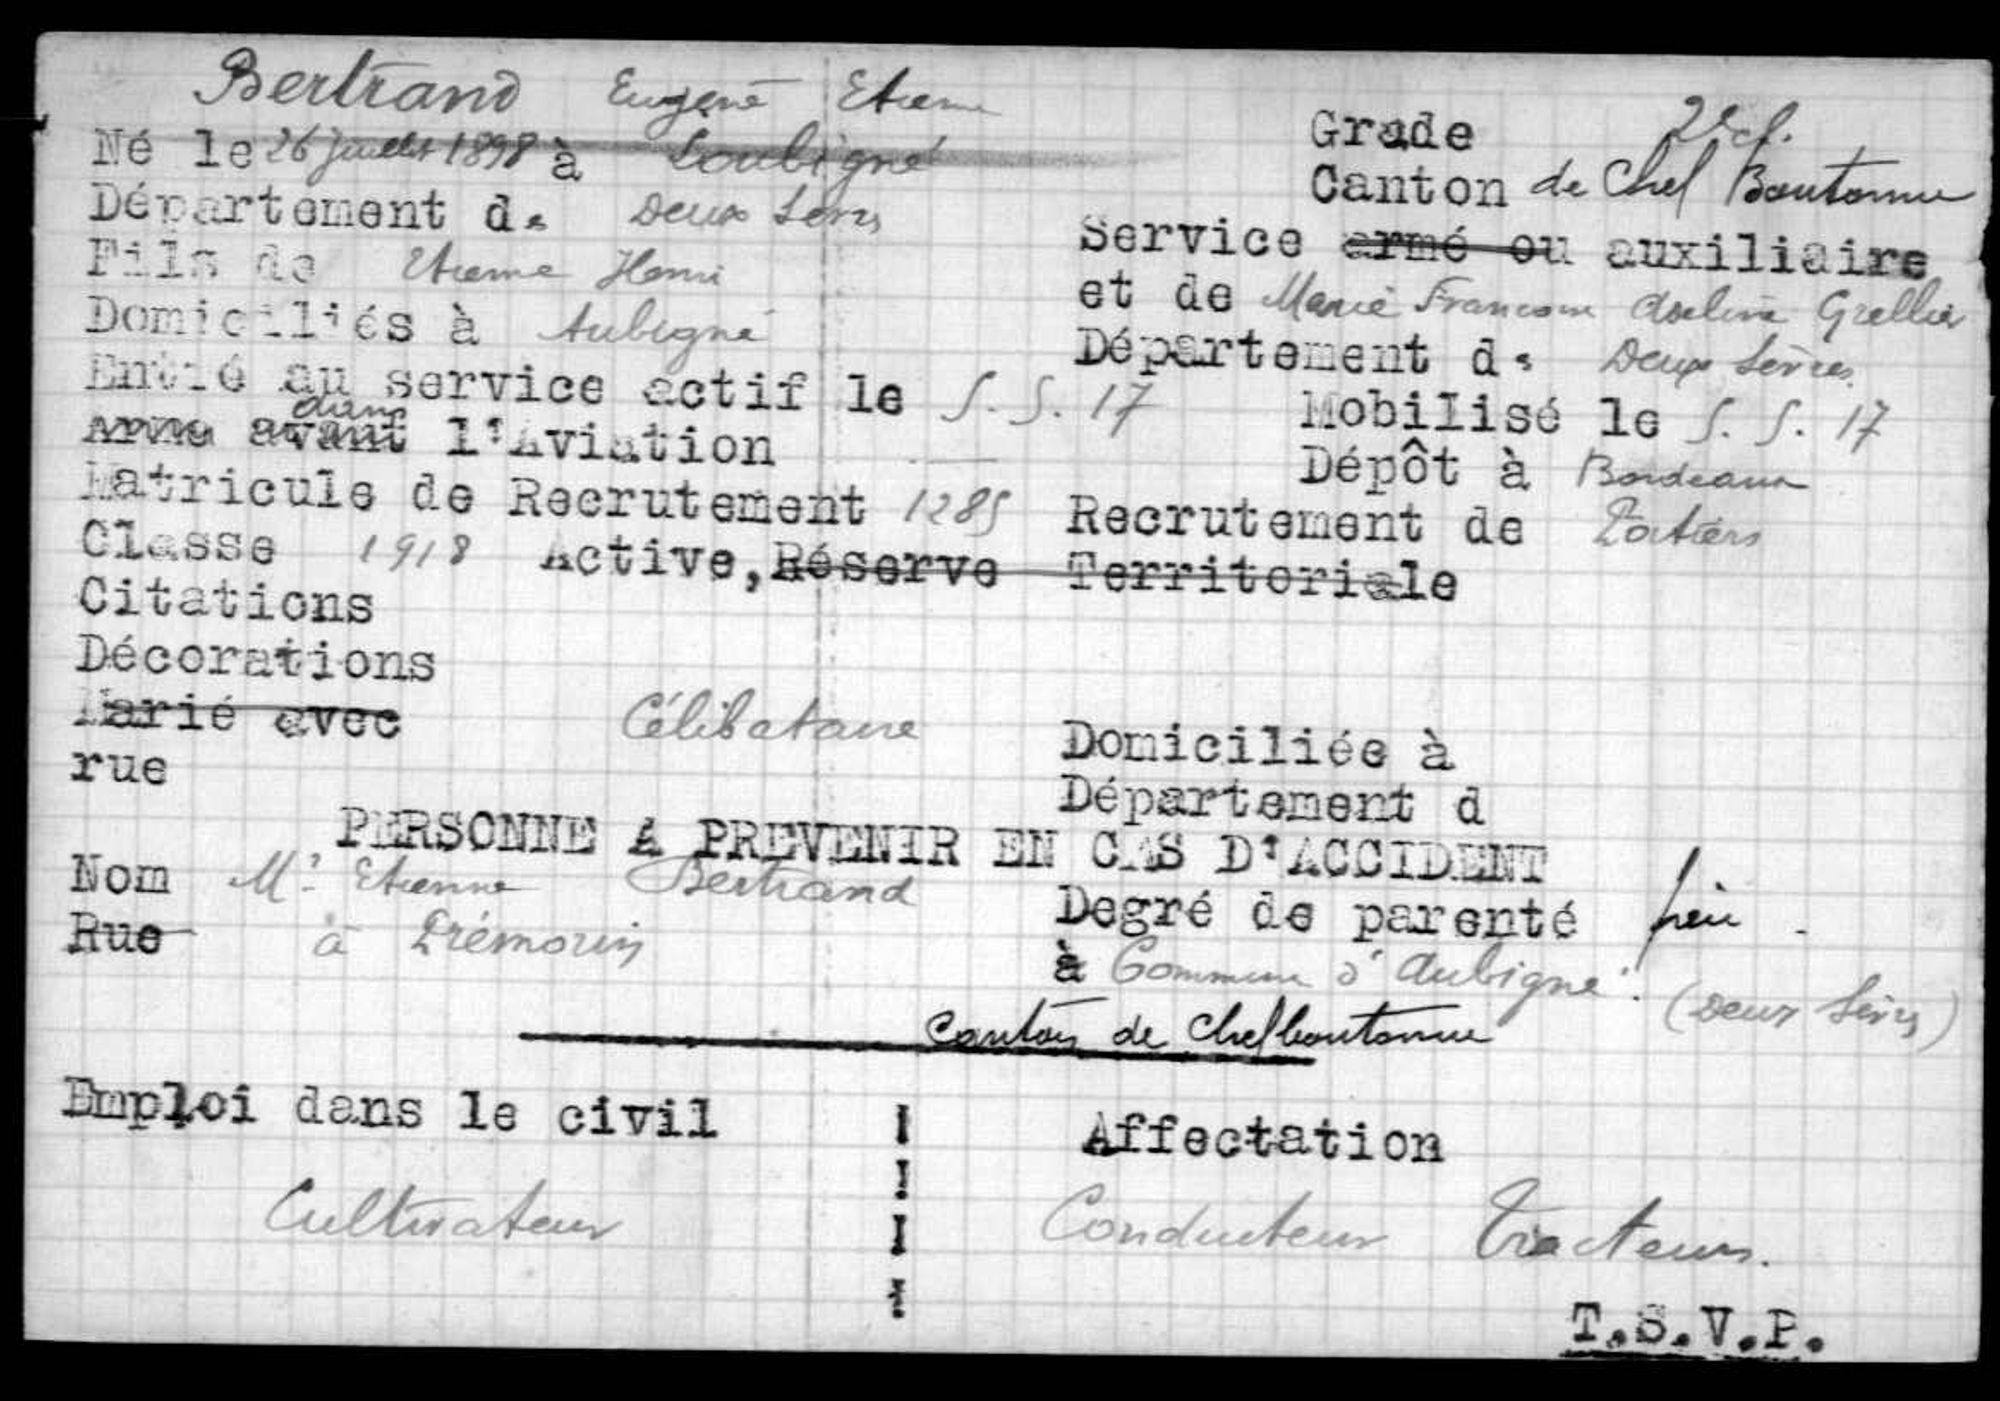 Bertrand Eugène Etienne
Grade 2e cl.
Né le 26 juillet 1898 à Loubigné
Canton de Chef Boutonne
Département de Deux Sèvres
Service armé ou auxiliaire
Fils de Etienne Henri
et de Marie Francoise Aseline Grellier
Domiciliés à Aubigné
Département de Deux Sèvres
Entré au service actif le 5. 5. 17
Mobilisé le 5. 5. 17
dans
Arme avant l'Aviation
Dépôt à Bordeaux
Matricule de Recrutement 1285
Recrutement de Poitiers
Classe 1918 Active, Réserve Territoriale
Citations
Décorations
Marié avec Célibataire
Domiciliée à
rue
Département d
PERSONNE A PREVENIR EN CAS D'ACCIDENT
Nom Mr Etienne Bertrand
Degré de parenté père.
Rue à
à Commune d'Aubigné. (Deux Sèvres)
canton de Chefboutonne
Emploi dans le civil
Affectation
Cultivateur
Conducteur Tracteurs.
T.S.V.P.